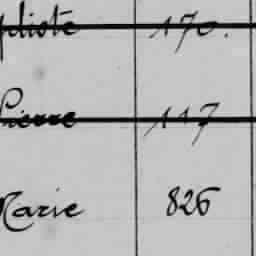 ptiste 170.
Pierre 117
Marie 826